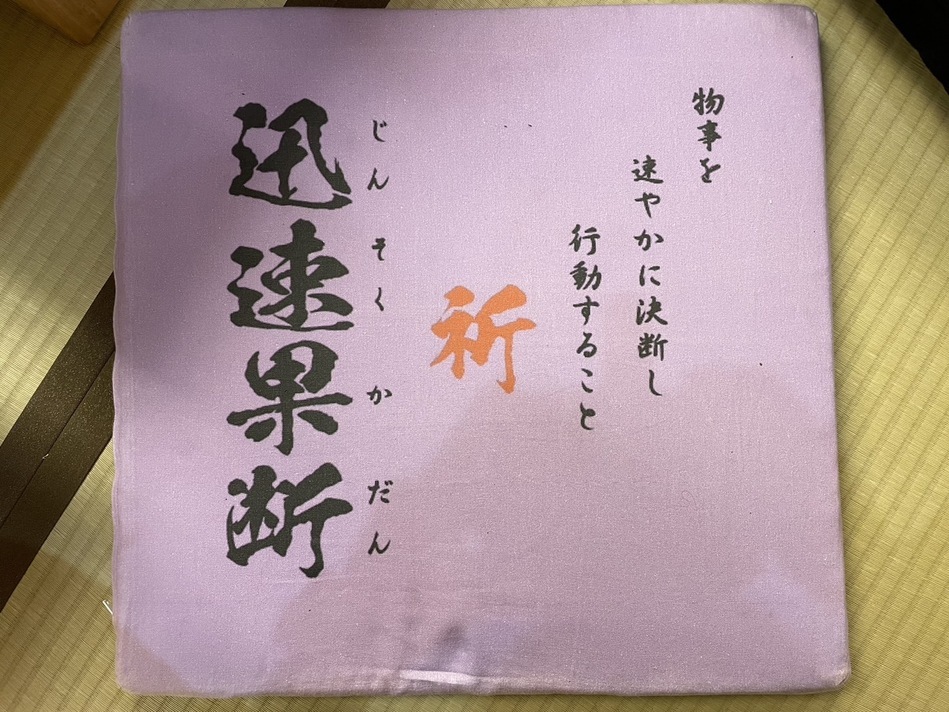 物事を
速やかに決断し
行動すること
祈
じんそくかだん
迅速果断